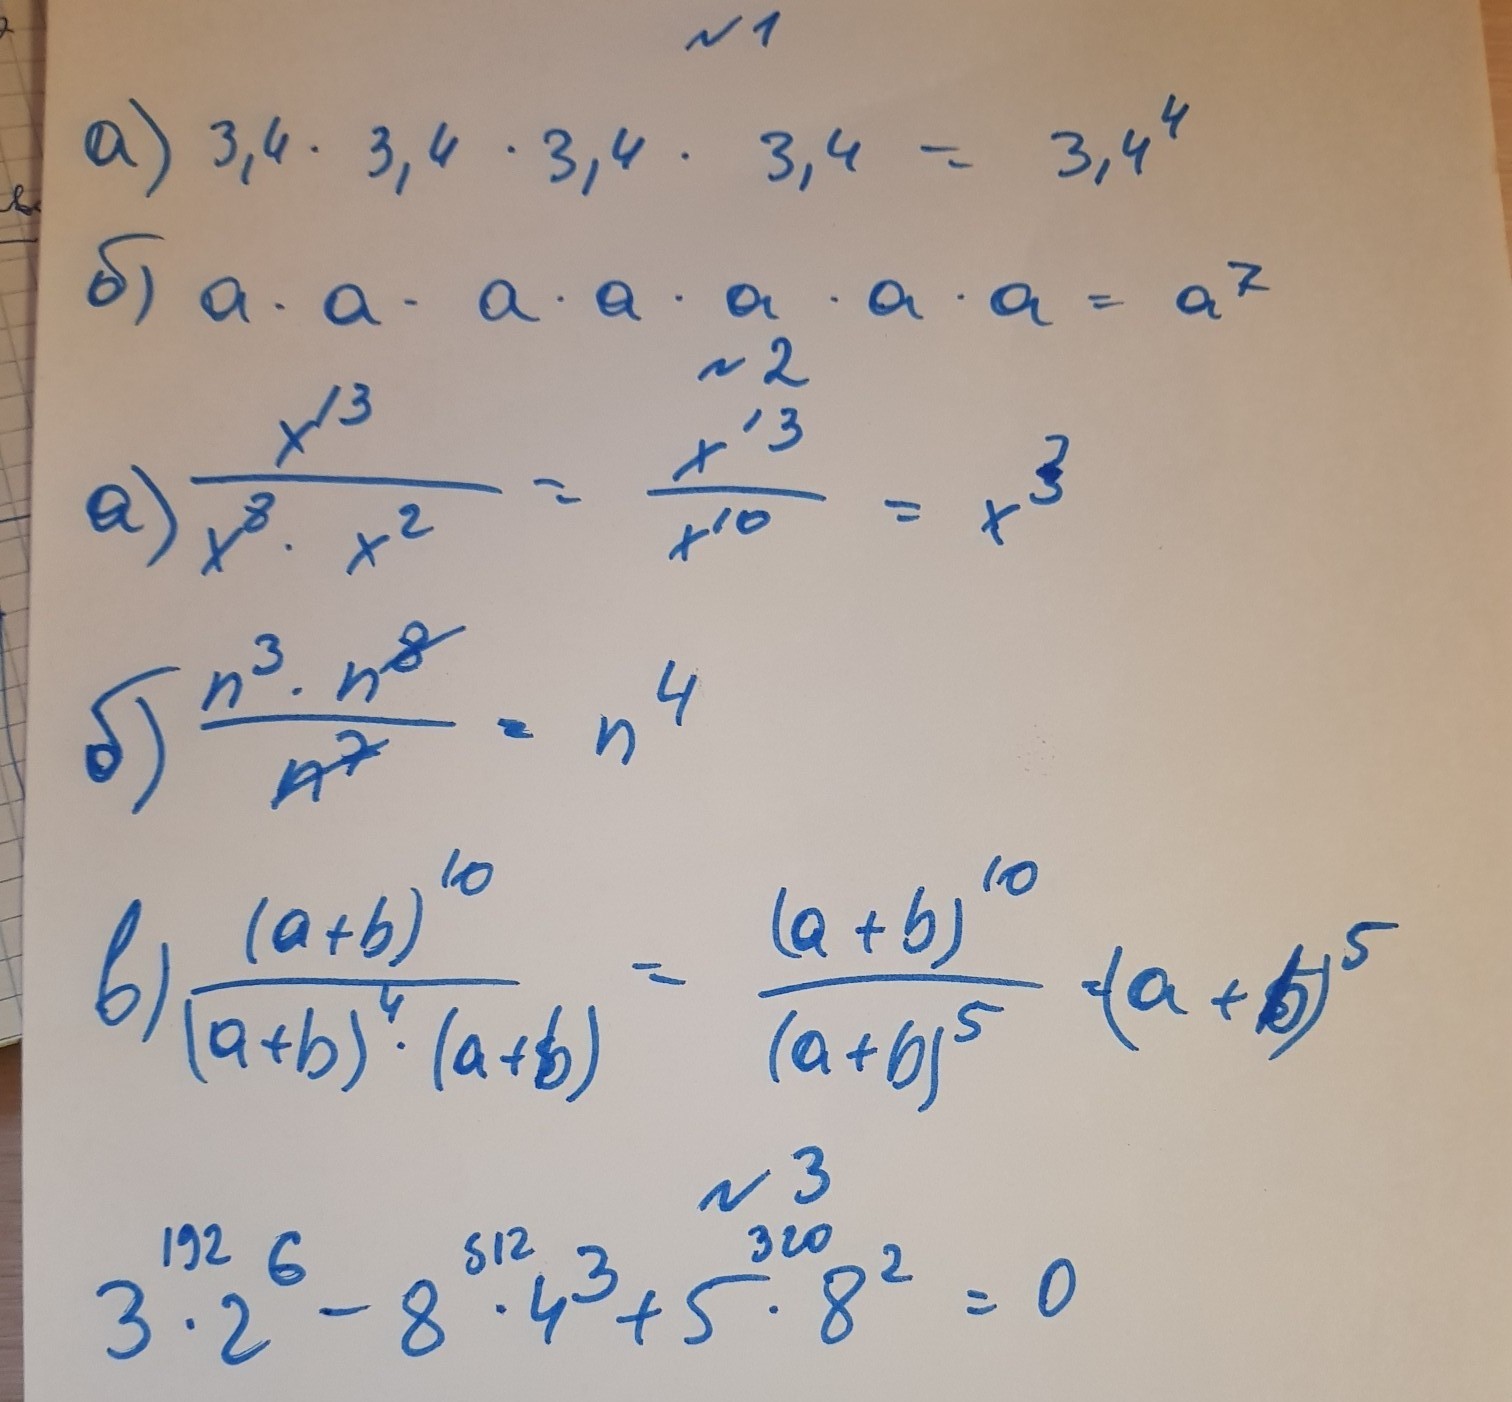 №1
а) 3,4 · 3,4 · 3,4 · 3,4 = 3,4⁴
б) a · a · a · a · a · a · a = a⁷
№2
а) x¹³ / (x⁸ · x²) = x¹³ / x¹⁰ = x³
б) (n³ · n⁸) / n⁷ = n⁴
в) (a+b)¹⁰ / ((a+b)⁴ · (a+b)) = (a+b)¹⁰ / (a+b)⁵ = (a+b)⁵
№3
192 512 320
3 · 2⁶ − 8 · 4³ + 5 · 8² = 0